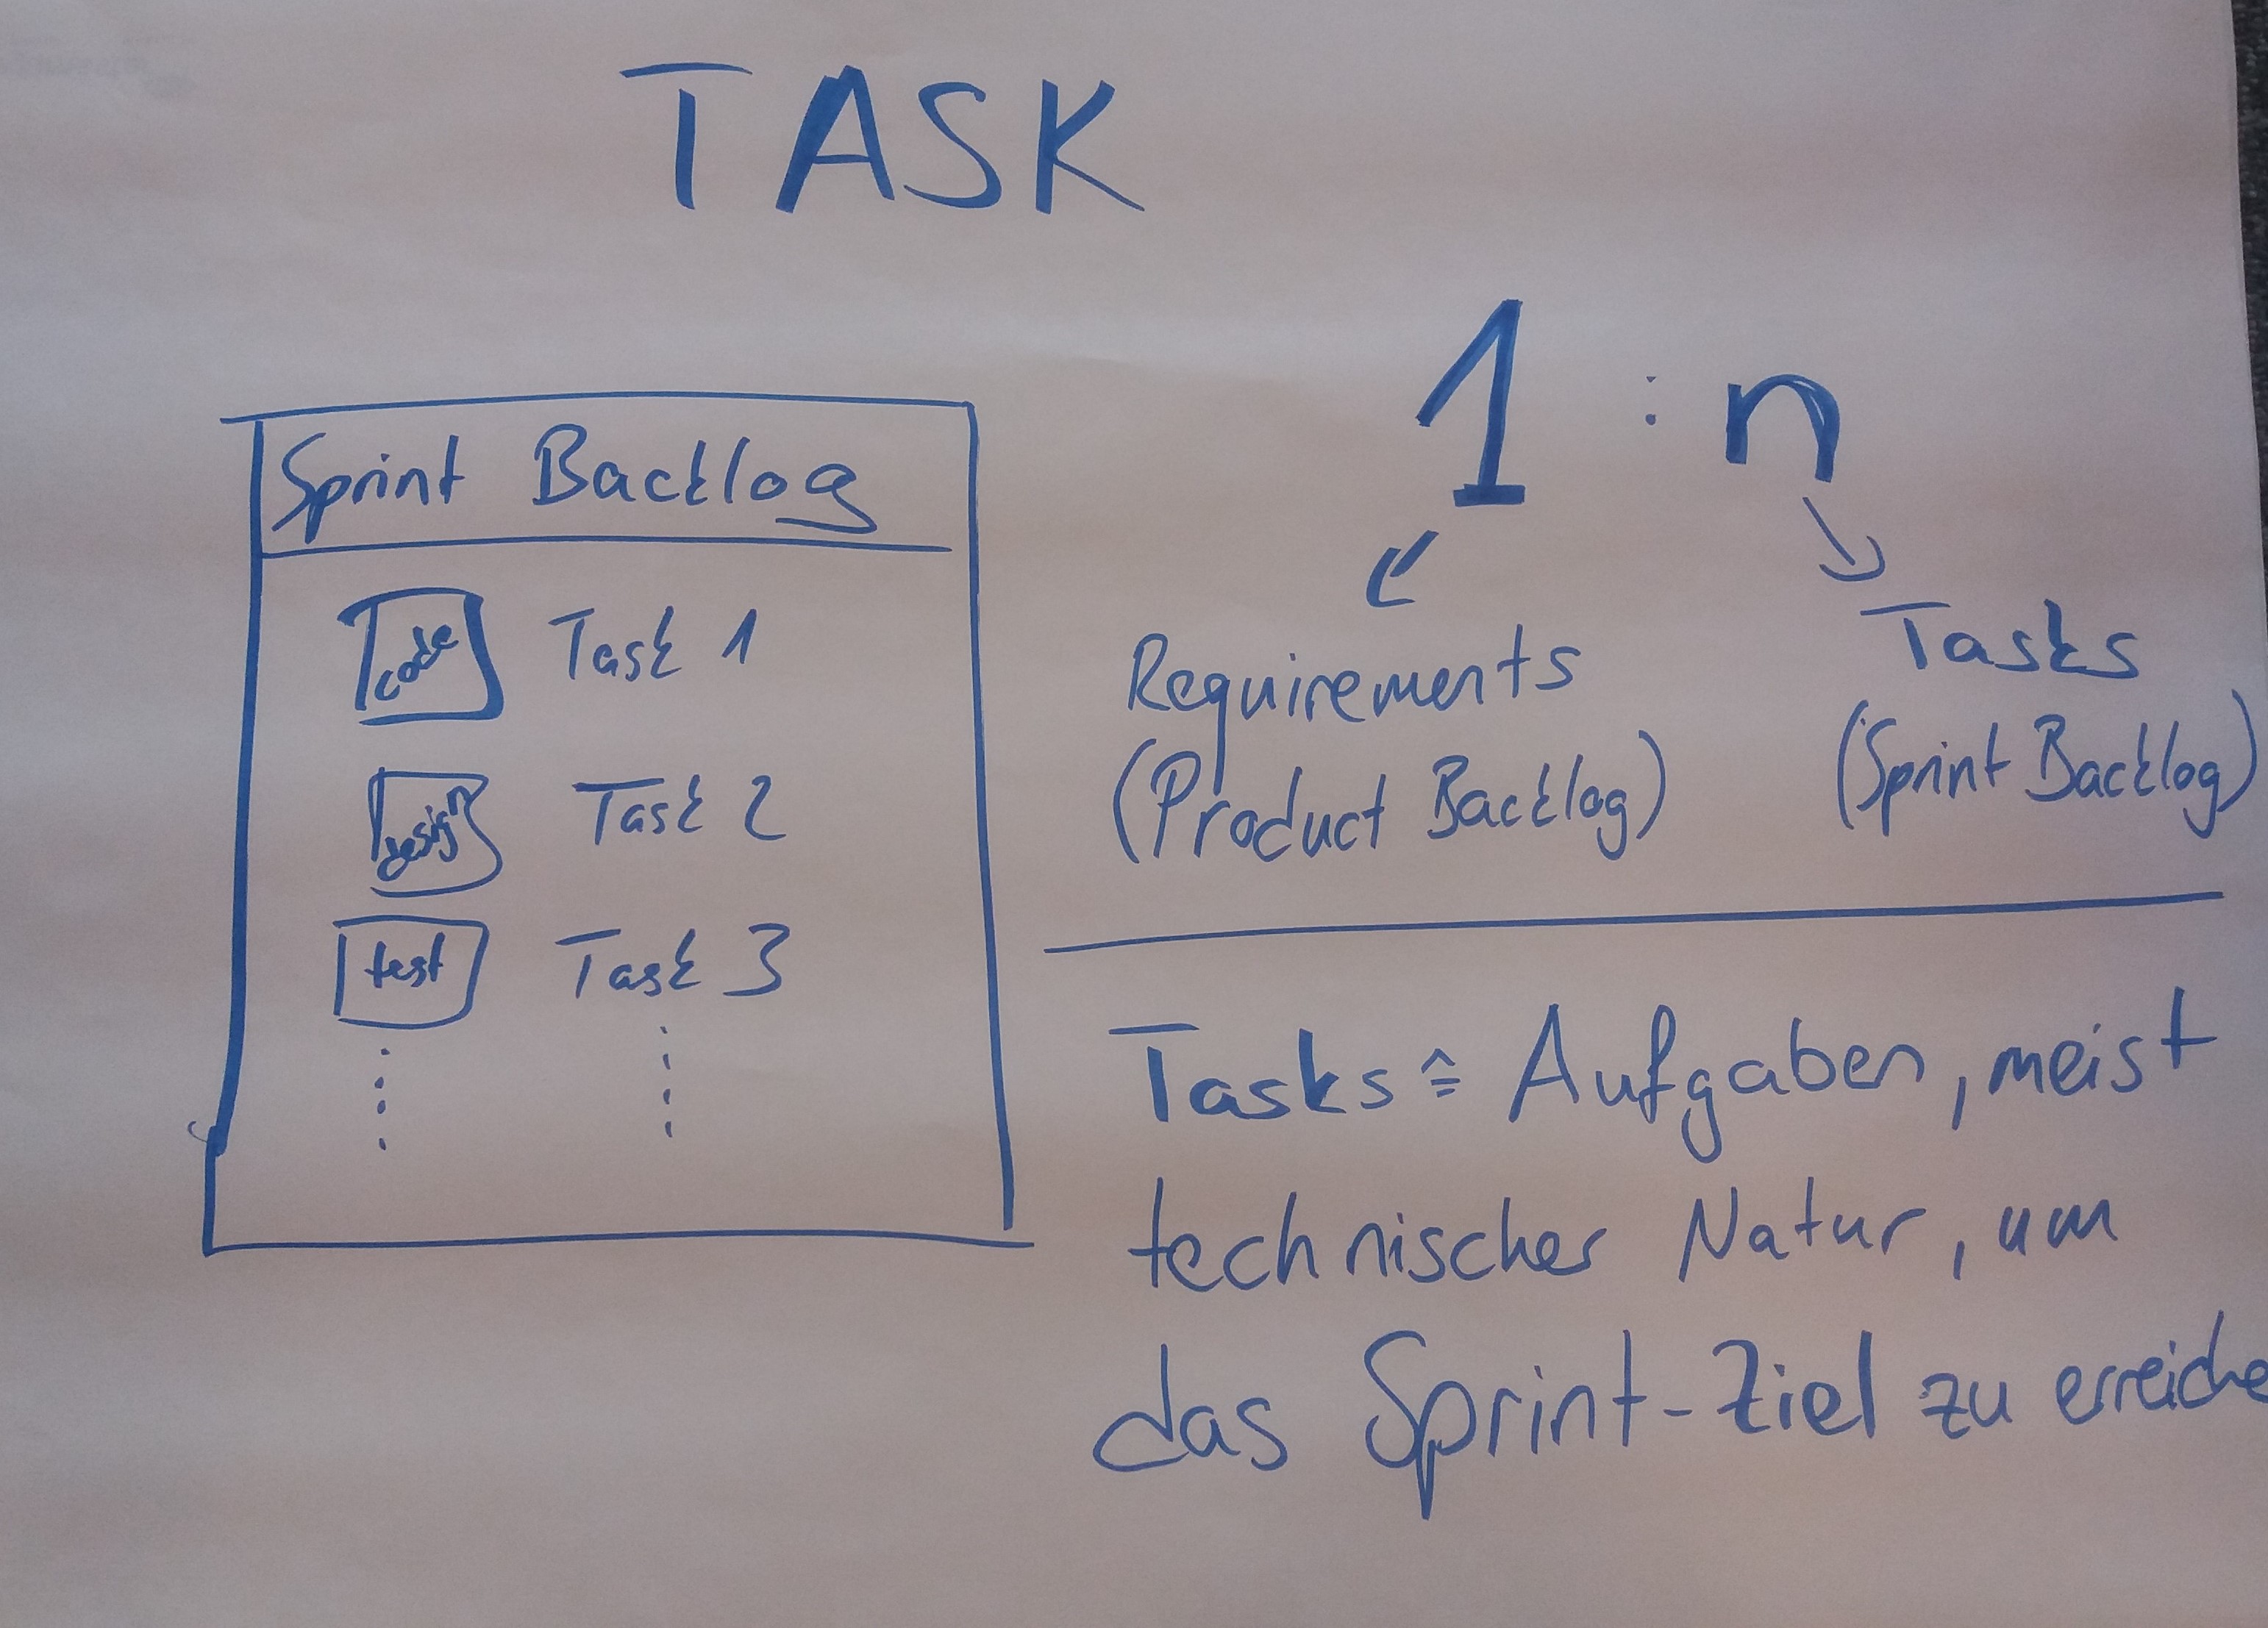 TASK
Sprint Backlog
code Task 1
design Task 2
test Task 3
1 : n
Requirements
(Product Backlog)
Tasks
(Sprint Backlog)
Tasks ≙ Aufgaben, meist
technischer Natur, um
das Sprint-Ziel zu erreiche